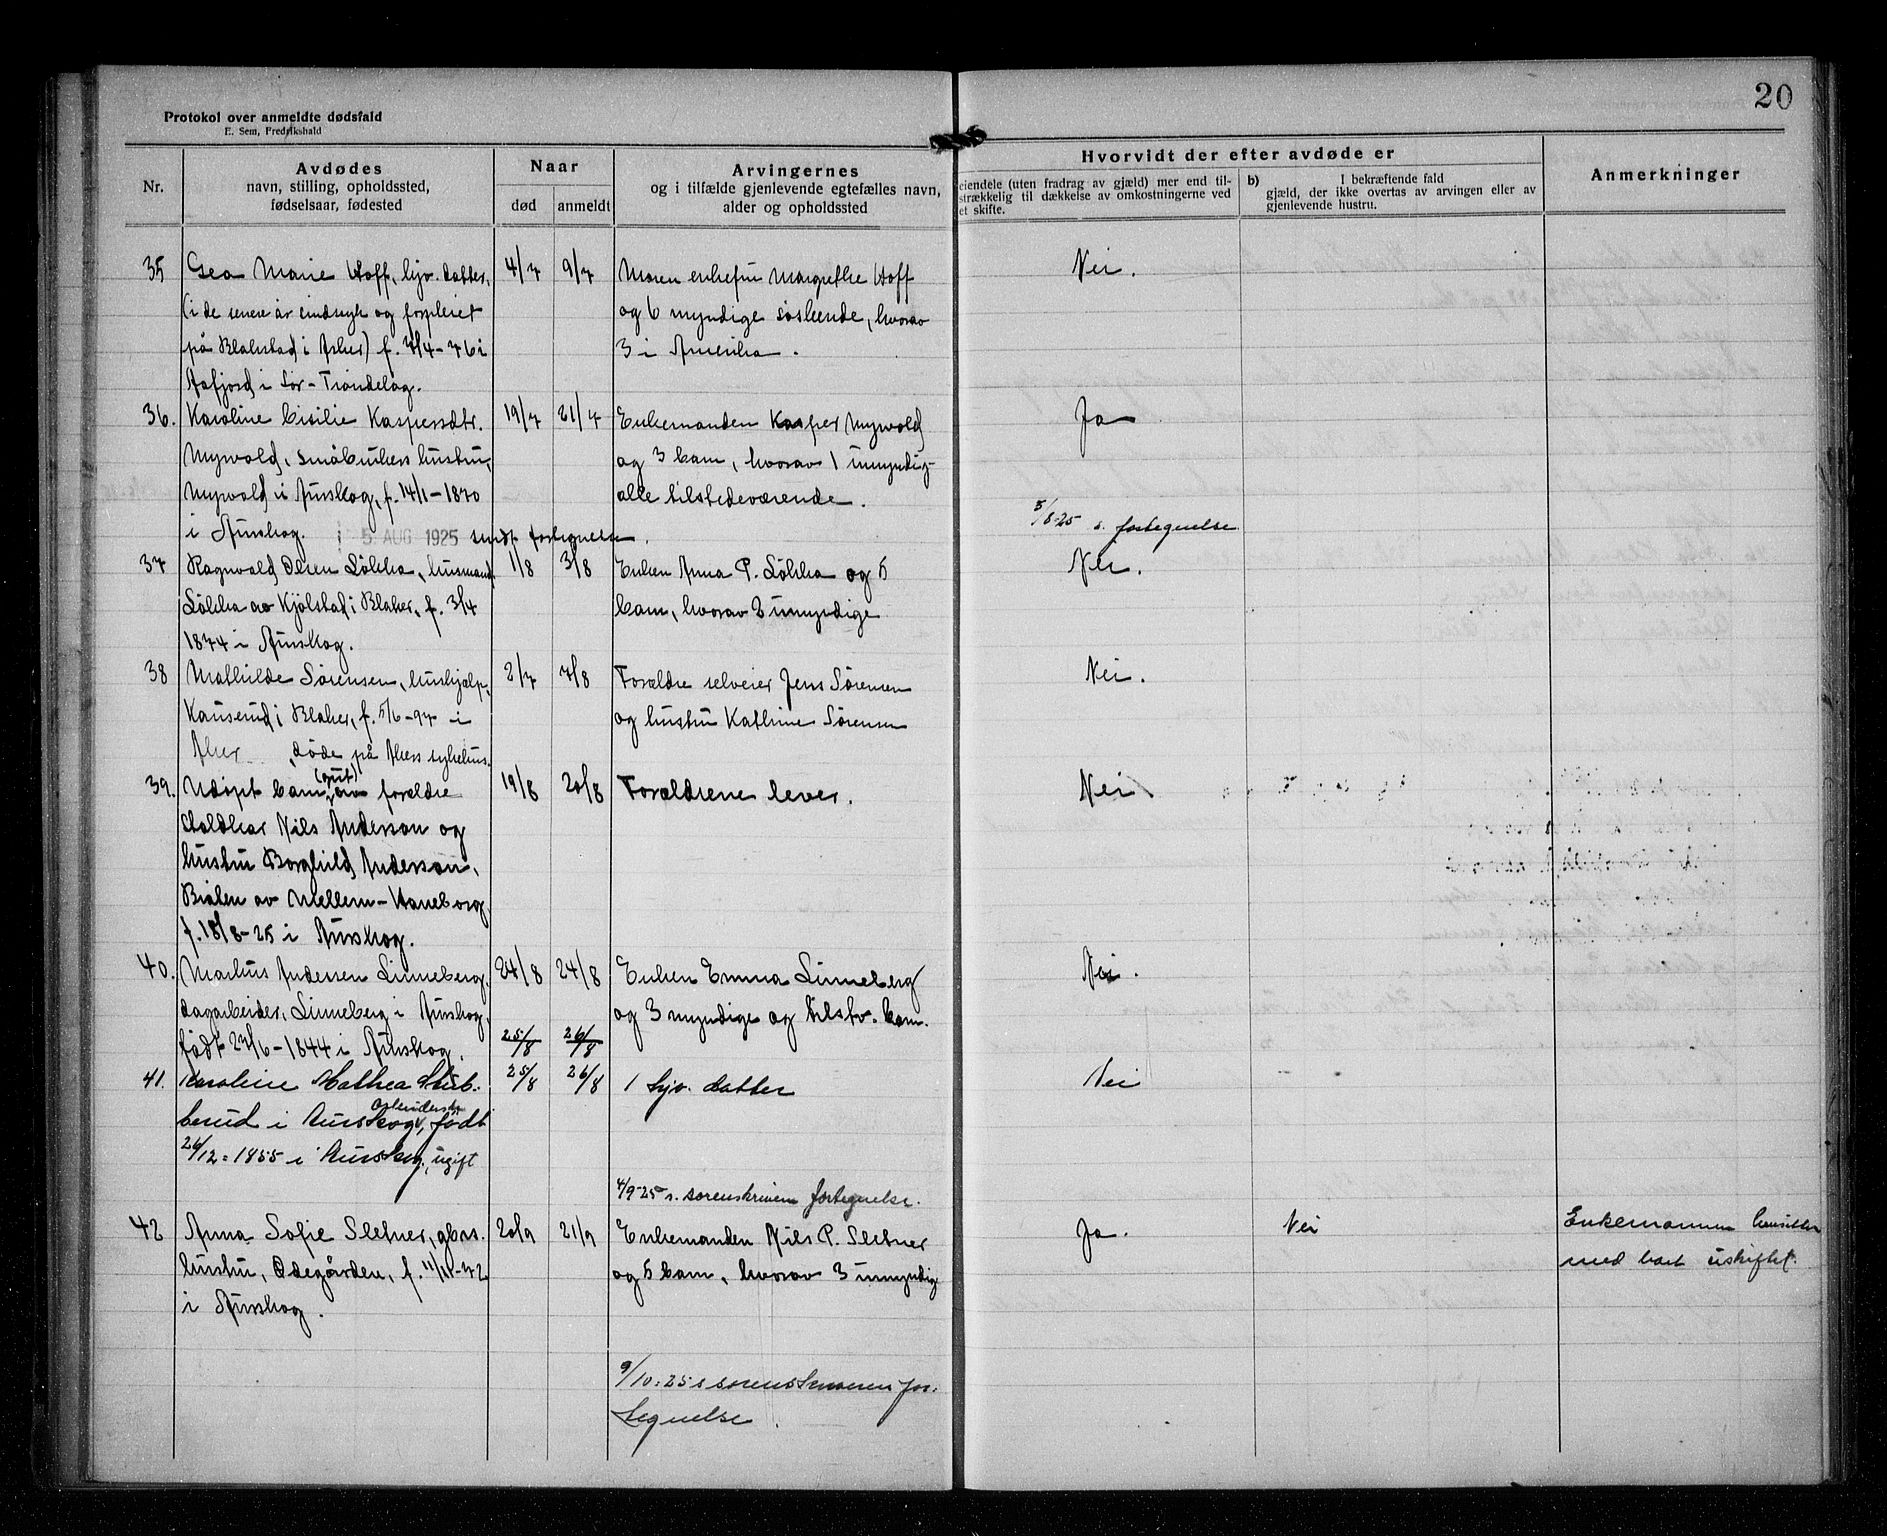 20
Protokol over anmeldte dødsfald
E. Sem, Fredrikshald
Nr.
Avdødes
navn, stilling, opholdssted,
fødselsaar, fødested
Naar
død
anmeldt
Arvingernes
og i tilfælde gjenlevende egtefælles navn,
alder og opholdssted
Hvorvidt der efter avdøde er
eiendele (uten fradrag av gjæld) mer end til-
strækkelig til dækkelse av omkostningerne ved
et skifte.
b) I bekræftende fald
gjæld, der ikke overtas av arvingen eller av
gjenlevende hustru.
Anmerkninger
35 Gea Marie Hoff, hjv. datter, 4/7 9/7 Moren enkefru Margrethe Hoff Nei.
(i de senere år sindssyk og forpleiet og 6 myndige søskende, hvorav
på Blakstad i Asker) f. /4-76 i 3 i Amerika.
Aafjord i Sør-Trøndelag.
36. Karoline Cisilie Kaspersdtr. 19/7 21/7 Enkemanden Kasper Myrvold Ja
Myrvold, småbrukers hustru, og 3 barn, hvorav 1 umyndig-
Myrvold i Aurskog, f. 14/1-1870 alle tilstedeværende.
i Aurskog. 5 AUG 1925 sendt fortegnelse. 5/8-25 s. fortegnelse.
37 Ragnvald Olsen Løkka, husmand, 1/8 3/8 Enken Anna P. Løkka og 5 Nei.
Løkka av Kjølstad i Blaker, f. 3/4 barn, hvorav 2 umyndige
1874 i Aurskog.
38 Mathilde Sørensen, hushjælp, 2/7 7/8 Forældre selveier Jens Sørensen Nei.
Kauserud i Blaker, f. 5/6-97 i og hustru Kathrine Sørensen
Aker døde på Akers sykehus.
39. Udøpt barn (gut) av forældre 19/8 20/8 Forældrene lever. Nei
Nils Anderson og
hustru Borghild Anderson,
Bråten av Mellem-Haneborg,
f. 18/8-25 i Aurskog.
40. Markus Andersen Linneberg, 24/8 24/8 Enken Emma Linneberg Nei.
dagarbeider, Linneberg i Aurskog, og 3 myndige og tilstv. barn.
født 27/6-1844 i Aurskog. 25/8 26/8
41. Karoline Mathea Stub- 25/8 26/8 1 hjv. datter Nei
berud i Aurskog, født
26/12-1855 i Aurskog, ugift
4/9-25 s. sorenskriveren fortegnelse.
42 Anna Sofie Sletner, gbrs. 20/9 21/9 Enkemanden Nils P. Sletner Ja. Nei Enkemannen hensitter
hustru, Ødegården, f. 11/11-72 og 5 barn, hvorav 3 umyndige med boet uskiftet.
i Aurskog.
9/10-25 s sorenskriveren for-
tegnelse